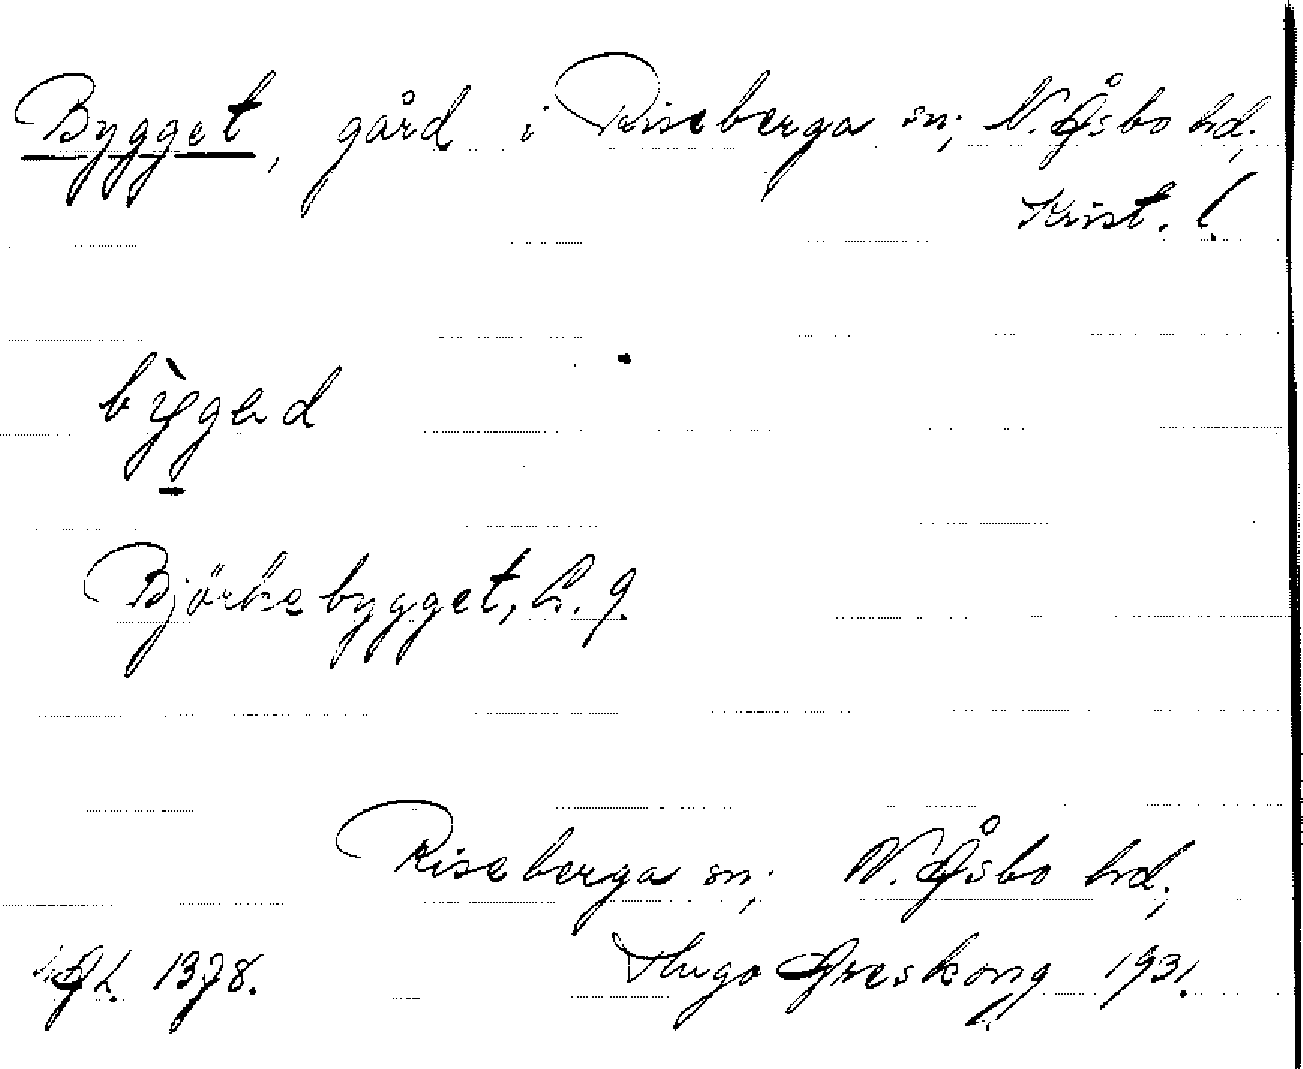 Bygget, gård i Riseberga sn; N. Åsbo hd;
Krist. l.
bỳgəd
Björkebygget,
Riseberga sn; N. Åsbo hd;
1378. Hugo Areskoug 1931.